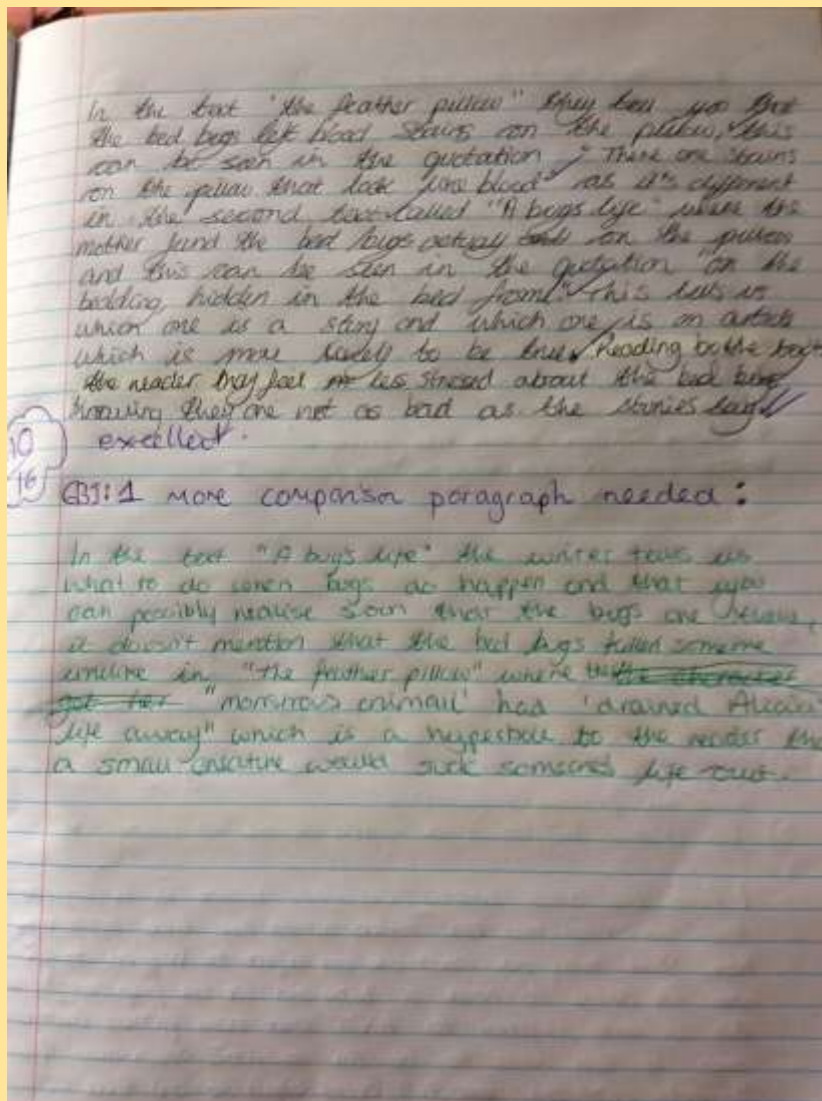 In the text "the feather pillow" they tell you that
the bed bugs left blood stains on the pillow, this
can be seen in the quotation, "There are stains
on the pillow that look like blood" as it's different
in the second text called "A bugs life" where the
mother fund the bed bugs actualy on the pillows
and this can be seen in the quotation "on the
bedding, hidden in the bed frame". This tells us
which one is a story and which one is an article
which is more likely to be true. Reading bothe
the reader may feel less stressed about the bed bugs
knowing they are not as bad as the stories say
excellent.
10
16
EBI: 1 more comparison paragraph needed:
In the text "A bugs life" the writer tells us
what to do when bugs do happen and that you
can possibly realise soon that the bugs are
it doesn't mention that the bed bugs killed someone
unlike in "the feather pillow" where the character
got her "monstrous animail" had 'drained
life away" which is a hyperbole to the reader tha
a small creature would suck someones life out.